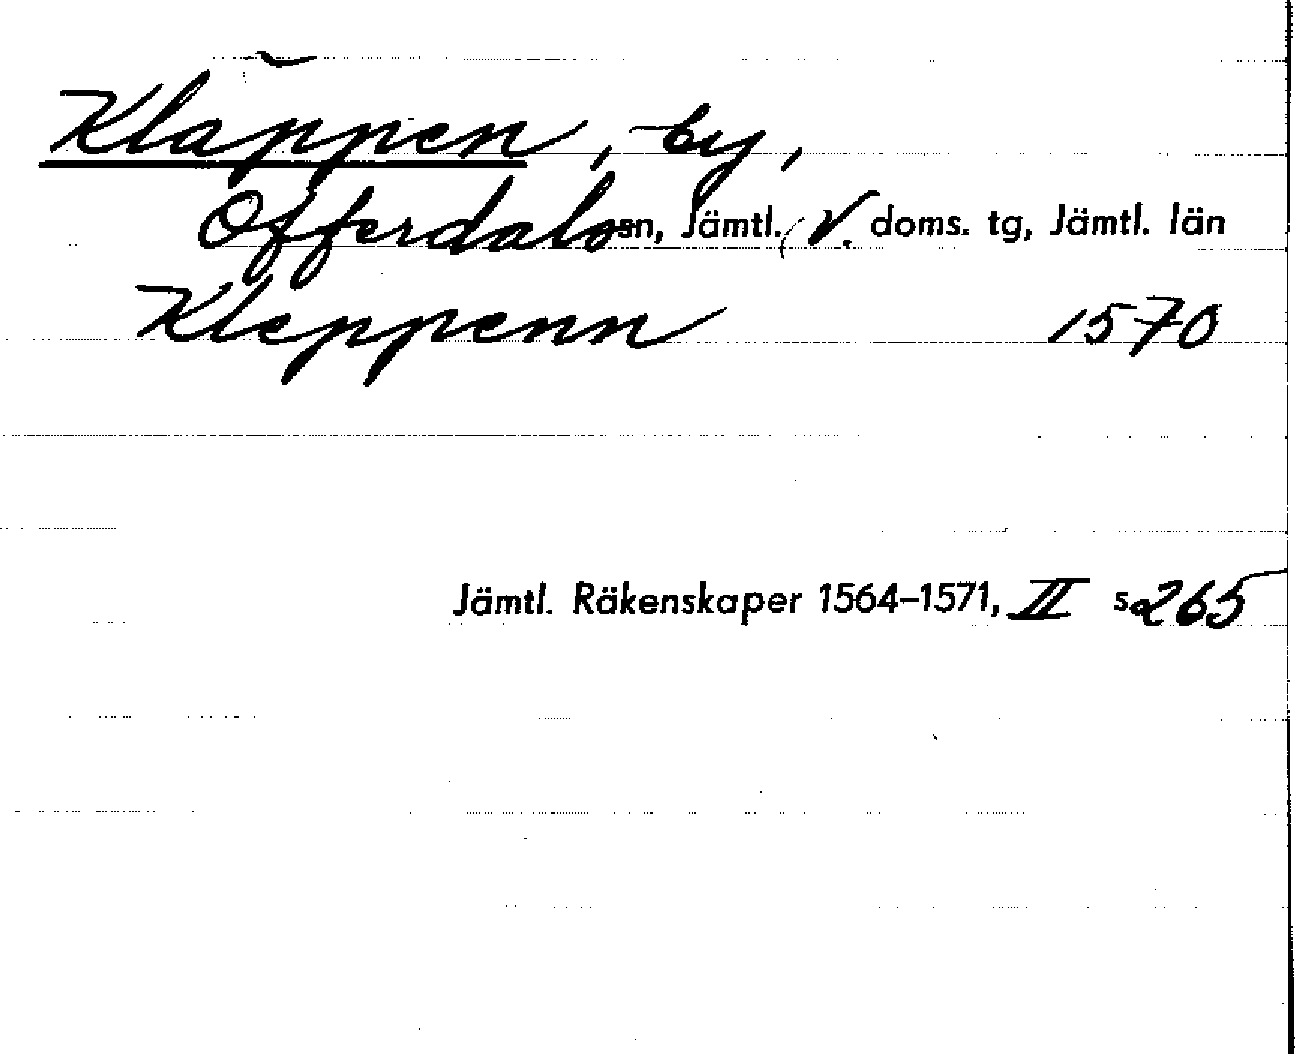 Kläppen, by,
Offerdals sn, Jämtl. V. doms. tg, Jämtl. län
Kleppenn 1570
Jämtl. Räkenskaper 1564–1571, II s. 265